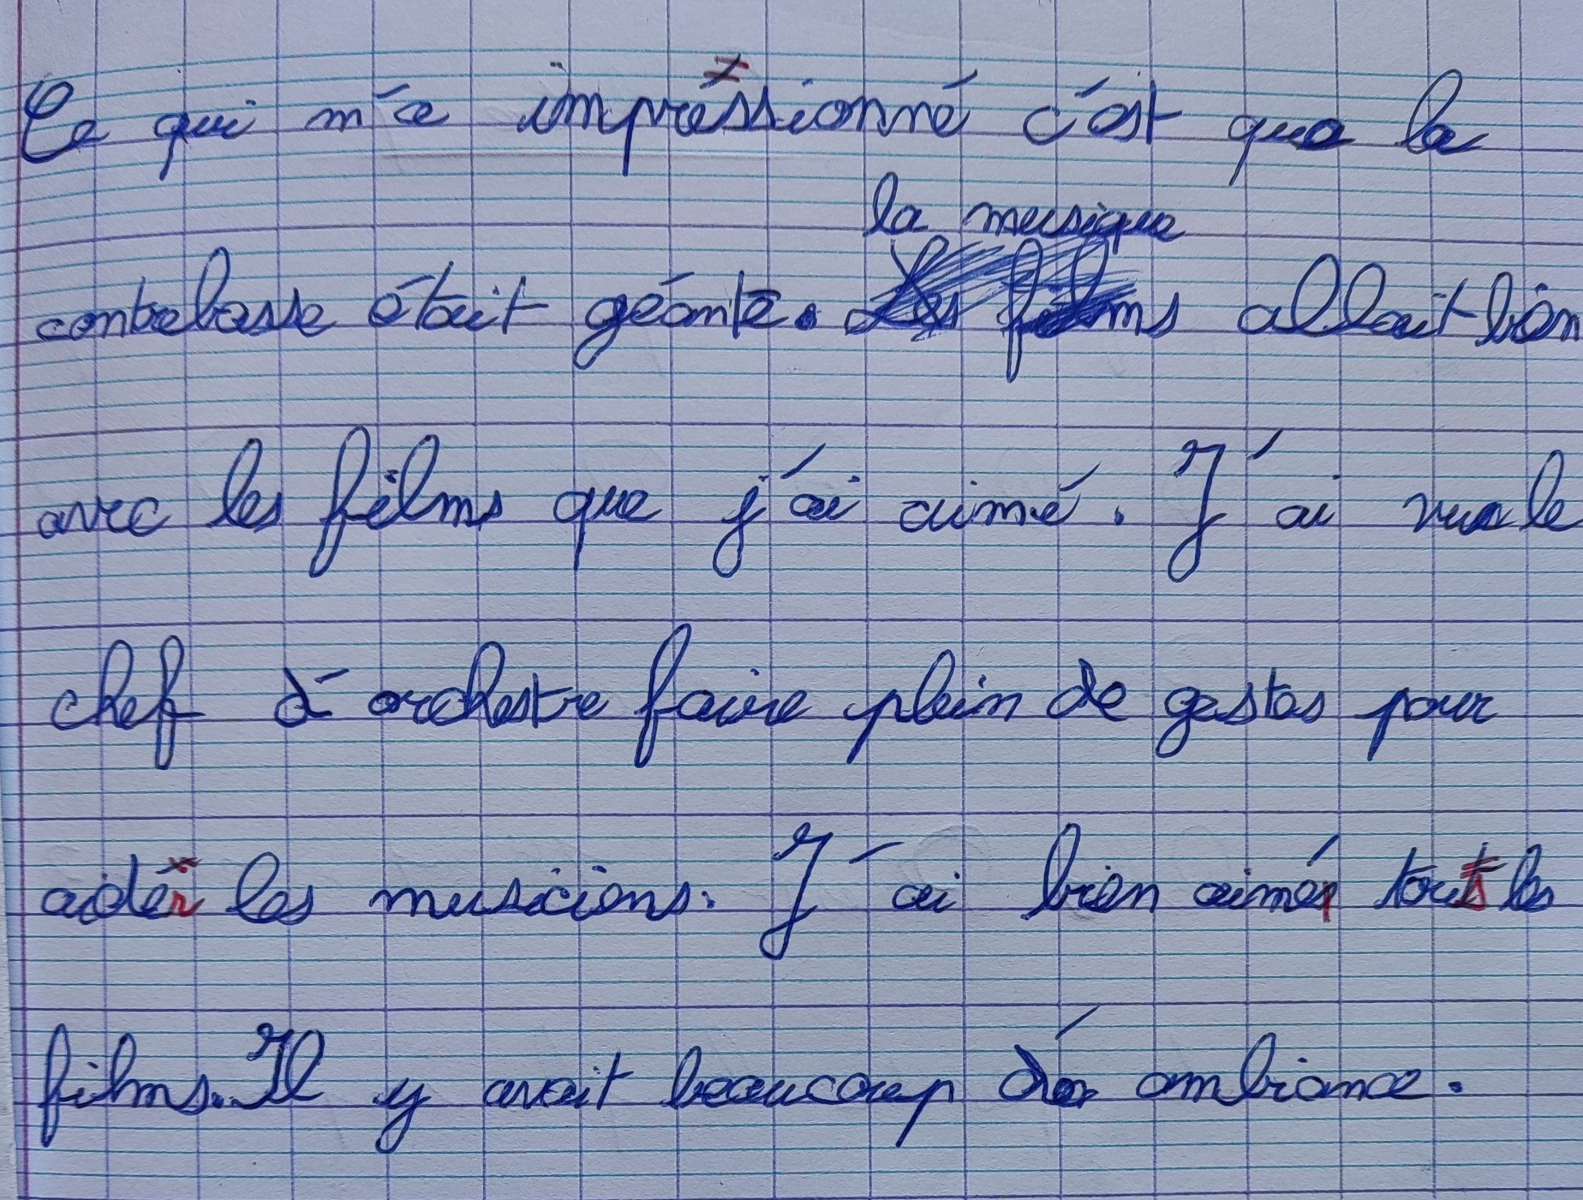 Ce qui m'a impressionné c'est que la
la musique
contrebasse était géante. allait bien
avec les films que j'ai aimé. J'ai vu le
chef d'orchestre faire plein de gestes pour
aider les musiciens. J'ai bien aimé tous les
films. Il y avait beaucoup d'ambiance.